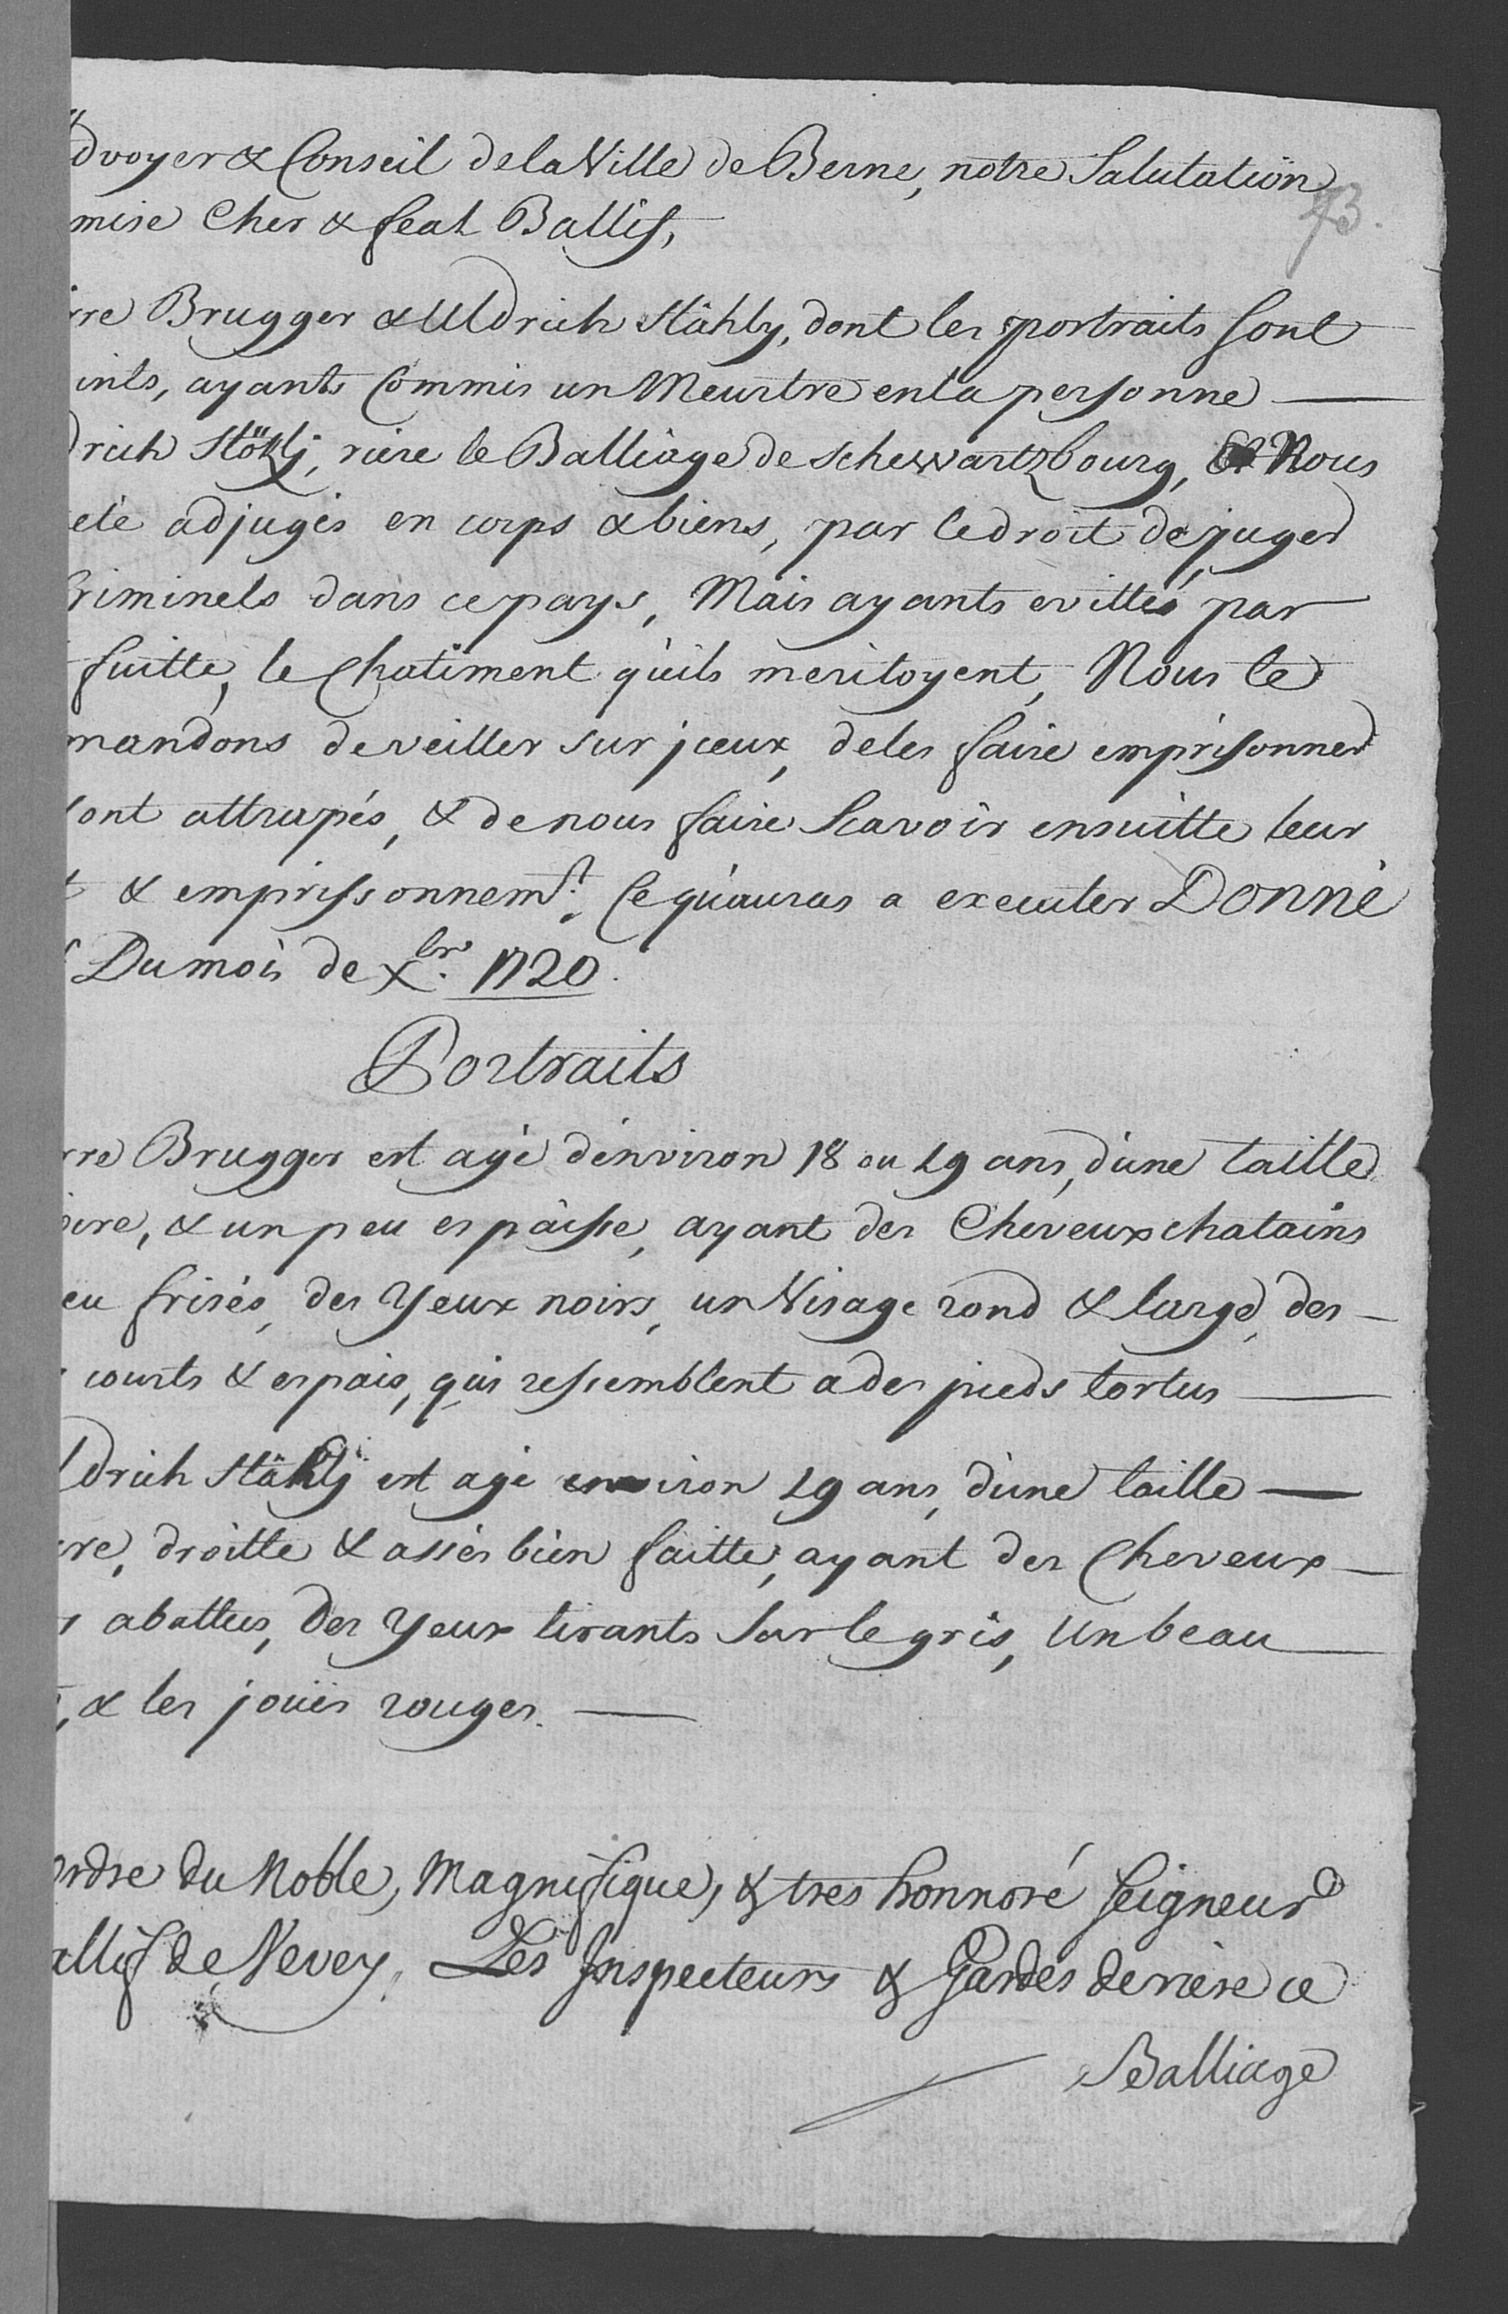 dvoyer & Conseil de la Ville de Berne, notre Salutation
73.
mise Cher & feal Ballif,
rre Brugger & Uldrich Stähly, dont les portraits sont
ints, ayants Commis un Meurtre en la personne
drich Stökly, riere le Balliage de Schewartzbourg, Nous
eté adjugés en corps & biens, par le droit de juger
Criminels dans ce pays, Mais ayants evittés par
fuitte, le Chatiment qu'ils meritoyent, Nous te
mandons de veiller sur jceux, de les faire emprisonner
sont attrapés, & de nous faire Scavoir ensuitte leur
t & emprissonnemt. Ce qu'auras a executer Donné
Du mois de Xbre. 1720.
Portraits
rre Brugger est agé d'environ 18 ou 19 ans, d'une taille
oire, & un peu espaisse, ayant des Cheveux chatains
eu frisés, des Yeux noirs, un Visage rond & large, des
courts & espais, qui ressemblent a des pieds tortus
ldrich Stähly est agé environ 19 ans, d'une taille
re, droitte & assés bien faitte, ayant des Cheveux
s abattus, des Yeux tirants sur le gris, un beau
, & les joües rouges.
ordre du Noble, Magnifique, & tres honnoré Seigneur
allif de Vevey. Les Inspecteurs & Gardes deriere ce
Balliage